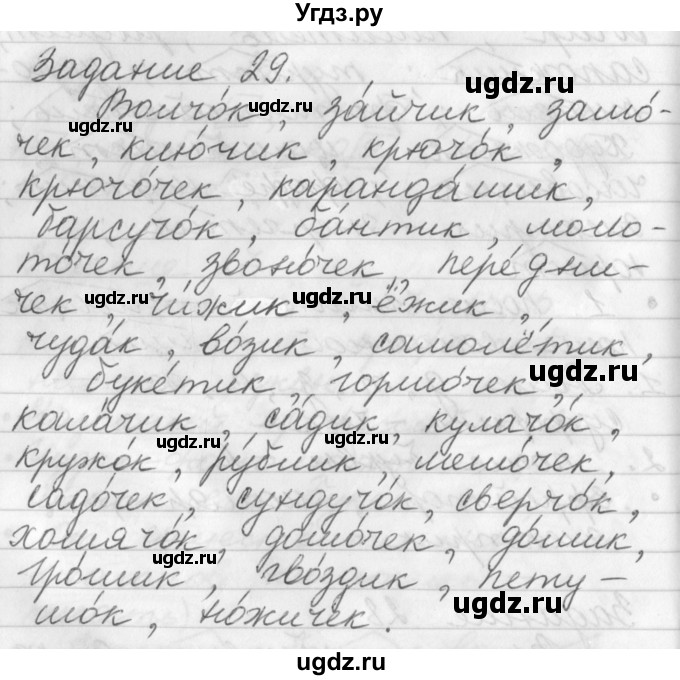 Угдз.ру
Задание 29.
Волчо́к, за́йчик, замо́-
чек, клю́чик, крючо́к,
крючо́чек, каранда́шик,
барсучо́к, ба́нтик, моло-
то́чек, звоно́чек, пере́дни-
чек, чи́жик, ёжик,
чуда́к, во́зик, самолётик,
буке́тик, горшо́чек,
кала́чик, са́дик, кулачо́к,
кружо́к, ру́блик, мешо́чек,
садо́чек, сундучо́к, сверчо́к,
хомячо́к, домо́чек, до́мик,
гро́шик, гво́здик, пету-
шо́к, но́жичек.
ugdz.ru